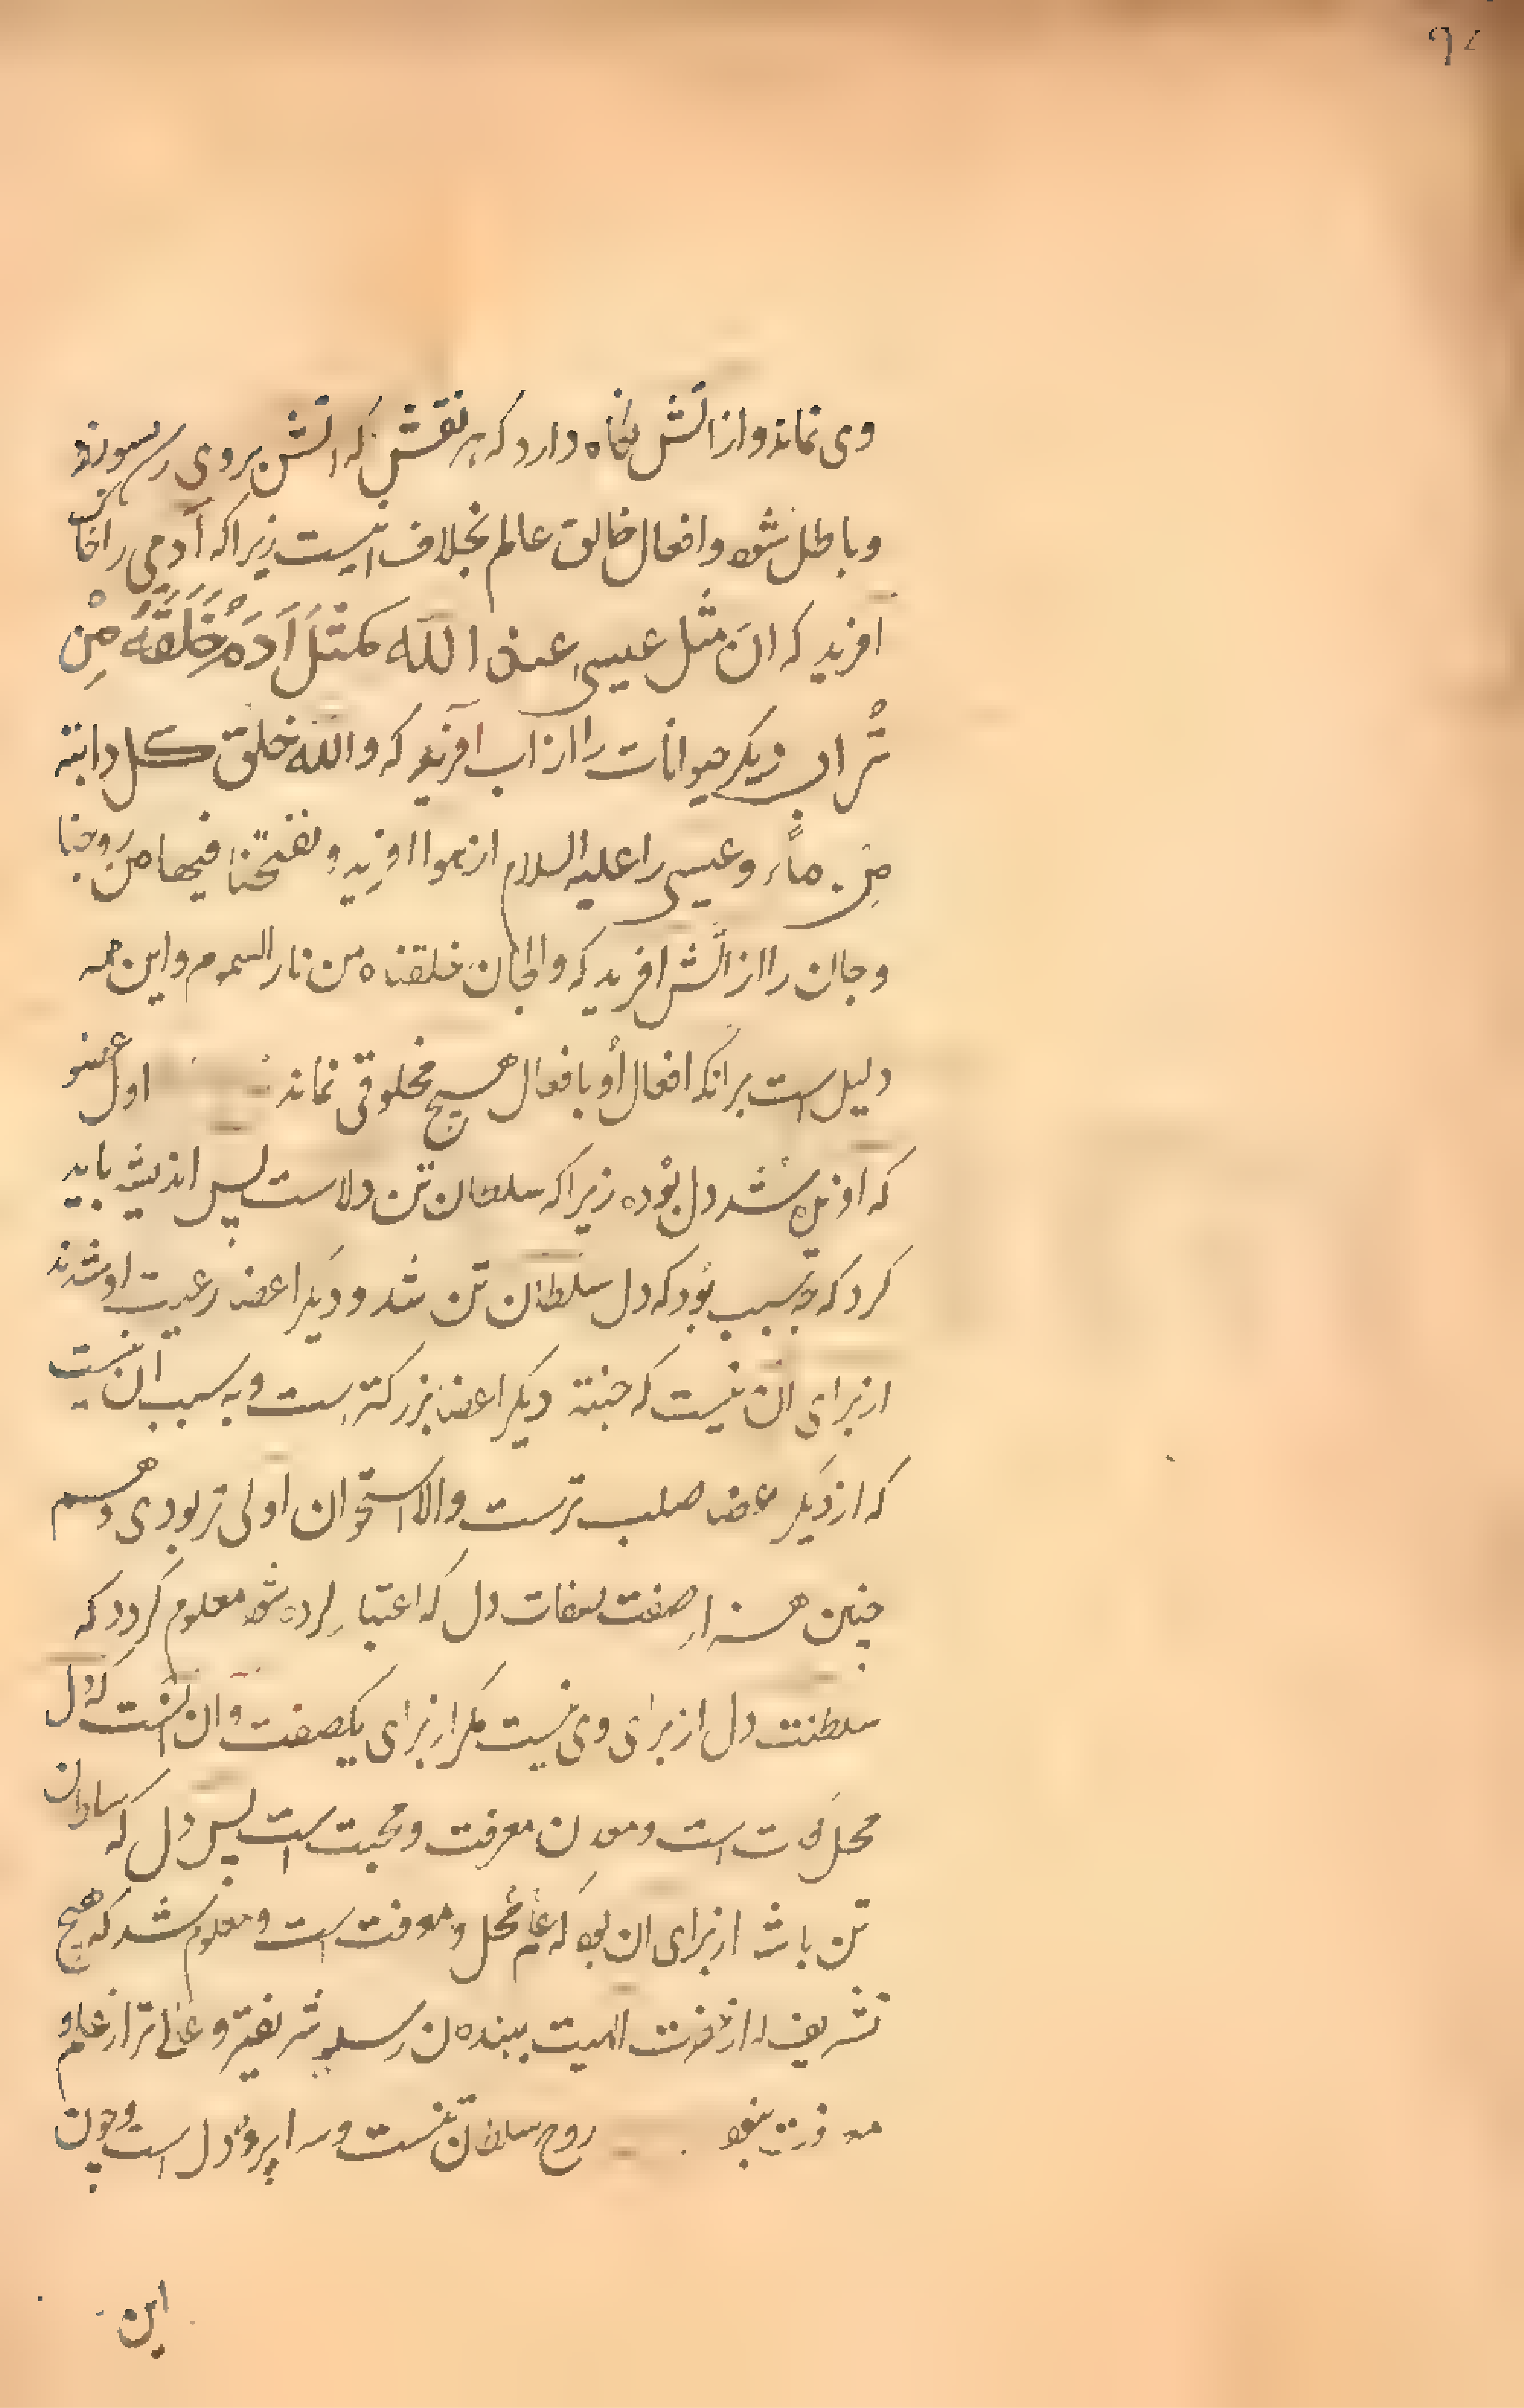 وی نماند و از اتش نگاه دارد که هر نقش که اتش بر وی رسد بسوزد
و باطل شود و افعال خالق عالم بخلاف اینست زیرا که آدمی را از خاک
آفرید که ان مثل عیسی عند الله کمثل آدَمَ خَلَقَهُ مِنْ
تُراب و دیگر حیوانات را از آب آفرید که والله خلق کل دابة
مِن ماءٍ و عیسی را علیه السلام از هوا افرید و نفخنا فیها من روحنا
و جان را از اتش افرید که والجان خلقناه من نار السموم و این همه
دلیل است بر انکه افعال او بافعال هیچ مخلوقی نماند اول عضو
که افریده شد دل بوده زیرا که سلطان تن دلاست پس اندیشه باید
کرد که چه سبب بود که دل سلطان تن شد و دیگر اعضا رعیت او شدند
از برای ان نیست که جثه دیگر اعضا بزرگتر است و به سبب آن نیست
که از دیگر اعضا صلب ترست والا استخوان اولی تر بودی و هم
چنین هزار صفت صفات دل که اعتبار کرده شود معلوم گردد که
سلطنت دل از برای وی نیست مگر از برای یکصفت و ان انست که دل
محل است و معدن معرفت و محبت است پس دل که سلطان
تن باشد از برای ان بود که محل و معرفت است و معلوم شد که هیچ
تشریف از حضرت الهیت ببنده ان رسد شریفتر و عالی تر از علم و
معرفت نبود روح سلطان تنست و دل است و چون
این